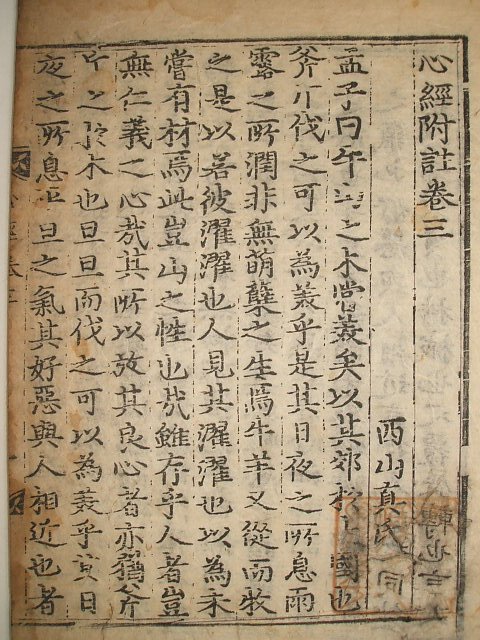 心經附註卷三
西山真氏
孟子曰牛山之木嘗羙矣以其郊於大國也
斧斤伐之可以為羙乎是其日夜之所息雨
露之所潤非無萌蘖之生焉牛羊又從而牧
之是以若彼濯濯也人見其濯濯也以為未
嘗有材焉此豈山之性也哉雖存乎人者豈
無仁義之心哉其所以放其良心者亦猶斧
斤之於木也旦旦而伐之可以為羙乎其日
夜之所息平旦之氣其好惡與人相近也者